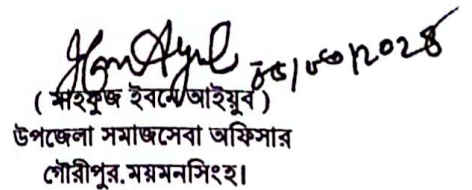 ( মাহফুজ ইবনে আইয়ুব )
উপজেলা সমাজসেবা অফিসার
গৌরীপুর, ময়মনসিংহ।